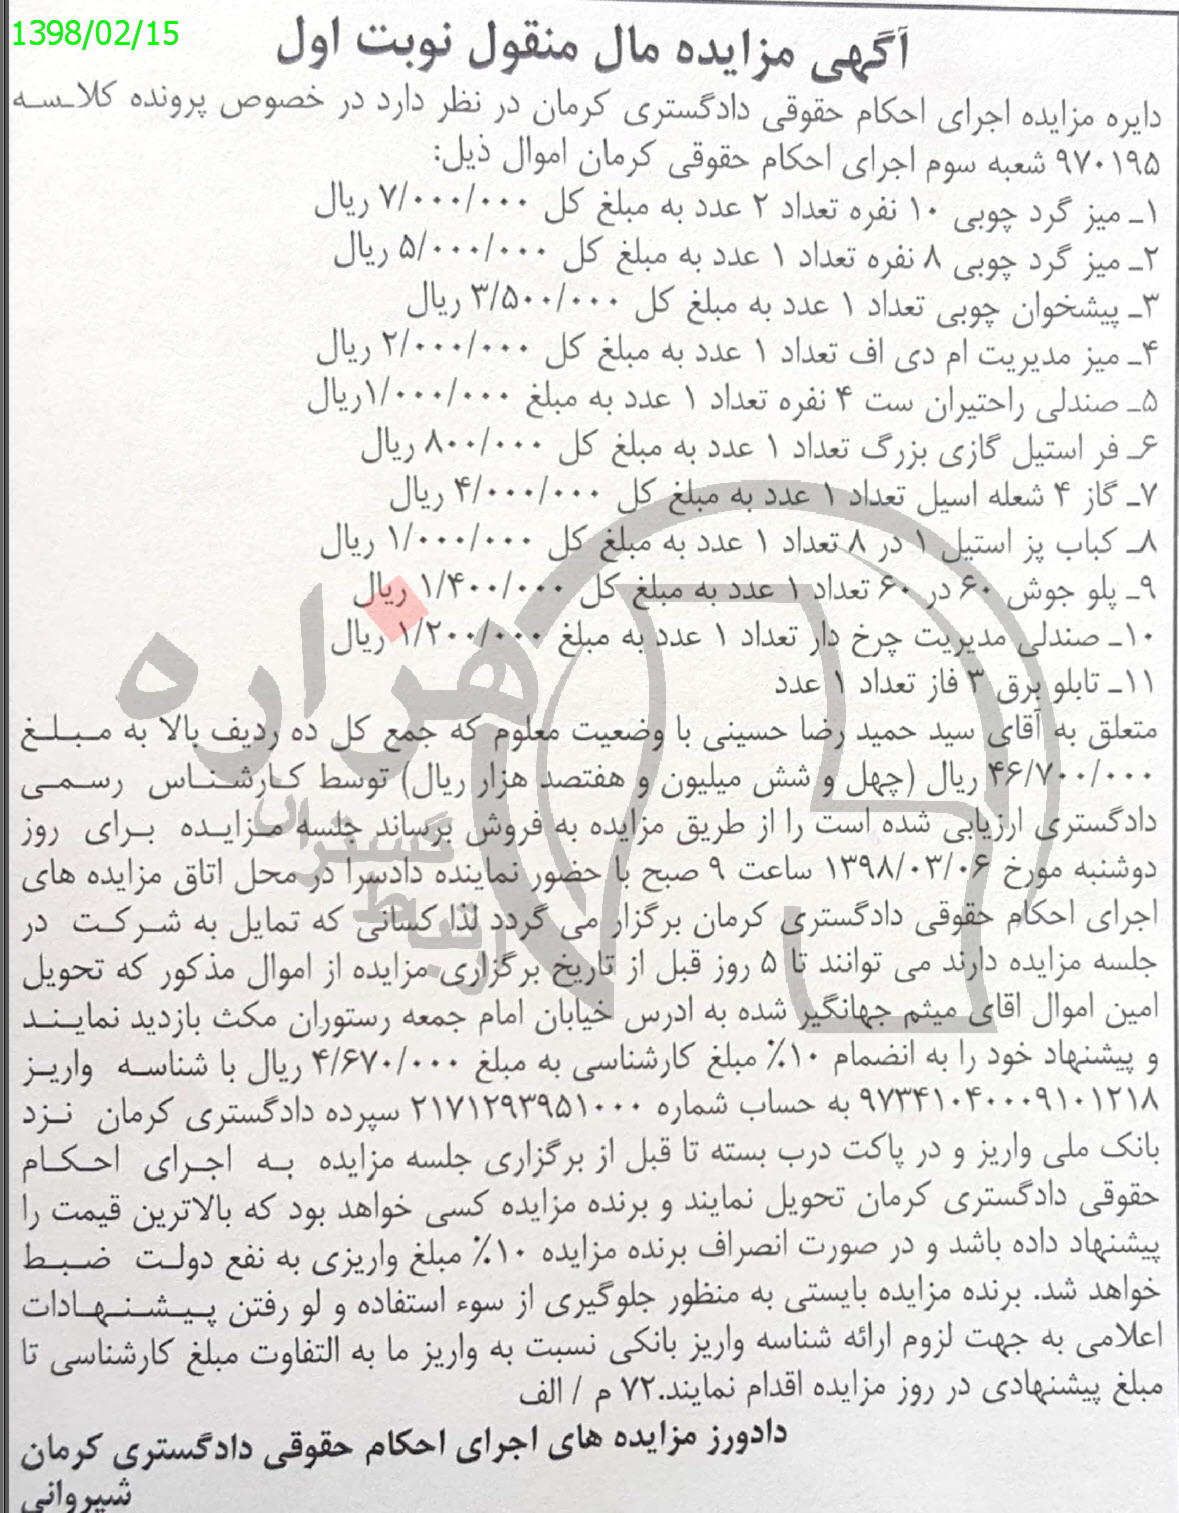 1398/02/15
آگهی مزایده مال منقول نوبت اول
دایره مزایده اجرای احکام حقوقی دادگستری کرمان در نظر دارد در خصوص پرونده کلاسه
۹۷۰۱۹۵ شعبه سوم اجرای احکام حقوقی کرمان اموال ذیل:
۱ـ میز گرد چوبی ۱۰ نفره تعداد ۲ عدد به مبلغ کل ۷/۰۰۰/۰۰۰ ریال
۲ـ میز گرد چوبی ۸ نفره تعداد ۱ عدد به مبلغ کل ۵/۰۰۰/۰۰۰ ریال
۳ـ پیشخوان چوبی تعداد ۱ عدد به مبلغ کل ۳/۵۰۰/۰۰۰ ریال
۴ـ میز مدیریت ام دی اف تعداد ۱ عدد به مبلغ کل ۲/۰۰۰/۰۰۰ ریال
۵ـ صندلی راحتیران ست ۴ نفره تعداد ۱ عدد به مبلغ ۱/۰۰۰/۰۰۰ریال
۶ـ فر استیل گازی بزرگ تعداد ۱ عدد به مبلغ کل ۸۰۰/۰۰۰ ریال
۷ـ گاز ۴ شعله اسیل تعداد ۱ عدد به مبلغ کل ۴/۰۰۰/۰۰۰ ریال
۸ـ کباب پز استیل ۱ در ۸ تعداد ۱ عدد به مبلغ کل ۱/۰۰۰/۰۰۰ ریال
۹ـ پلو جوش ۶۰ در ۶۰ تعداد ۱ عدد به مبلغ کل ۱/۴۰۰/۰۰۰ ریال
۱۰ـ صندلی مدیریت چرخ دار تعداد ۱ عدد به مبلغ ۱/۲۰۰/۰۰۰ ریال
۱۱ـ تابلو برق ۳ فاز تعداد ۱ عدد
متعلق به آقای سید حمید رضا حسینی با وضعیت معلوم که جمع کل ده ردیف بالا به مبلغ
۴۶/۷۰۰/۰۰۰ ریال (چهل و شش میلیون و هفتصد هزار ریال) توسط کارشناس رسمی
دادگستری ارزیابی شده است را از طریق مزایده به فروش برساند جلسه مزایده برای روز
دوشنبه مورخ ۱۳۹۸/۰۳/۰۶ ساعت ۹ صبح با حضور نماینده دادسرا در محل اتاق مزایده های
اجرای احکام حقوقی دادگستری کرمان برگزار می گردد لذا کسانی که تمایل به شرکت در
جلسه مزایده دارند می توانند تا ۵ روز قبل از تاریخ برگزاری مزایده از اموال مذکور که تحویل
امین اموال اقای میثم جهانگیر شده به ادرس خیابان امام جمعه رستوران مکث بازدید نمایند
و پیشنهاد خود را به انضمام ۱۰٪ مبلغ کارشناسی به مبلغ ۴/۶۷۰/۰۰۰ ریال با شناسه واریز
۹۷۳۴۱۰۴۰۰۰۹۱۰۱۲۱۸ به حساب شماره ۲۱۷۱۲۹۳۹۵۱۰۰۰ سپرده دادگستری کرمان نزد
بانک ملی واریز و در پاکت درب بسته تا قبل از برگزاری جلسه مزایده به اجرای احکام
حقوقی دادگستری کرمان تحویل نمایند و برنده مزایده کسی خواهد بود که بالاترین قیمت را
پیشنهاد داده باشد و در صورت انصراف برنده مزایده ۱۰٪ مبلغ واریزی به نفع دولت ضبط
خواهد شد. برنده مزایده بایستی به منظور جلوگیری از سوء استفاده و لو رفتن پیشنهادات
اعلامی به جهت لزوم ارائه شناسه واریز بانکی نسبت به واریز ما به التفاوت مبلغ کارشناسی تا
مبلغ پیشنهادی در روز مزایده اقدام نمایند.۷۲ م / الف
دادورز مزایده های اجرای احکام حقوقی دادگستری کرمان
شیروانی
هزاره
گستران